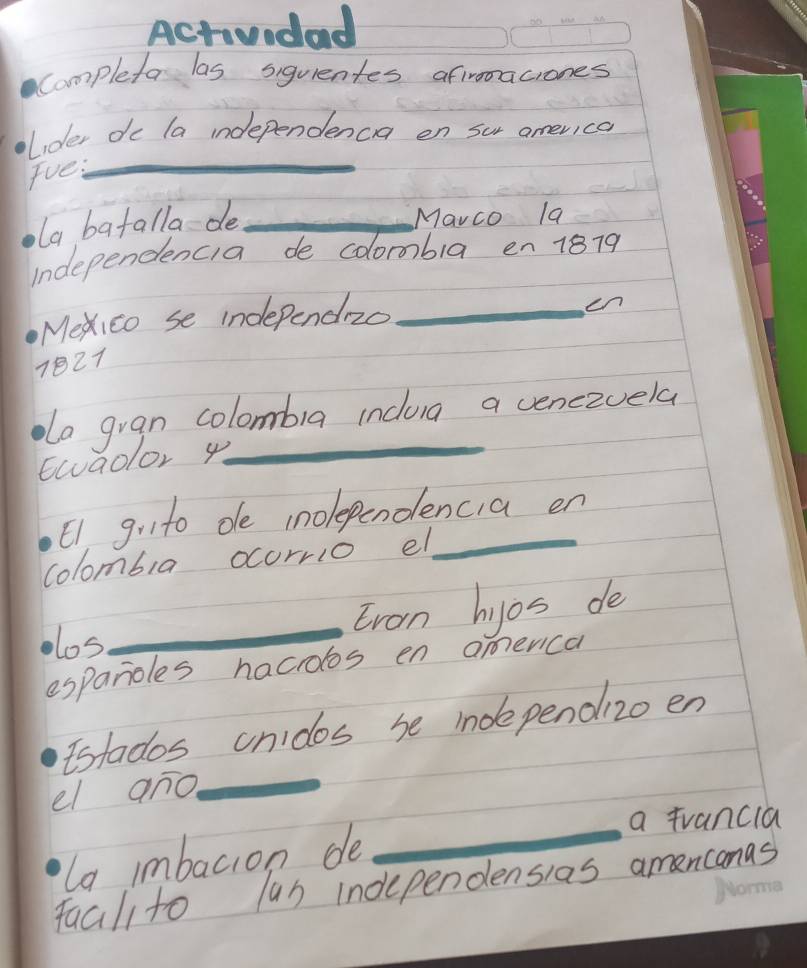 Actividad
•Completa las siguientes afirmaciones
•Lider de la independencia en sur america
Fue:
•la batalla de ______ Marco la
Independencia de colombia en 1819
•Mexico se independizo ______ en
1821
•La gran colombia incluia a venezuela
Ecuador y ______
•El grito de independencia en
colombia ocurrio el ______
•los ______ Eran hijos de
españoles nacidos en america
•Estados unidos se independizo en
el año ______
•la imbacion de ______ a francia
facilito las independensias americanas
Norma